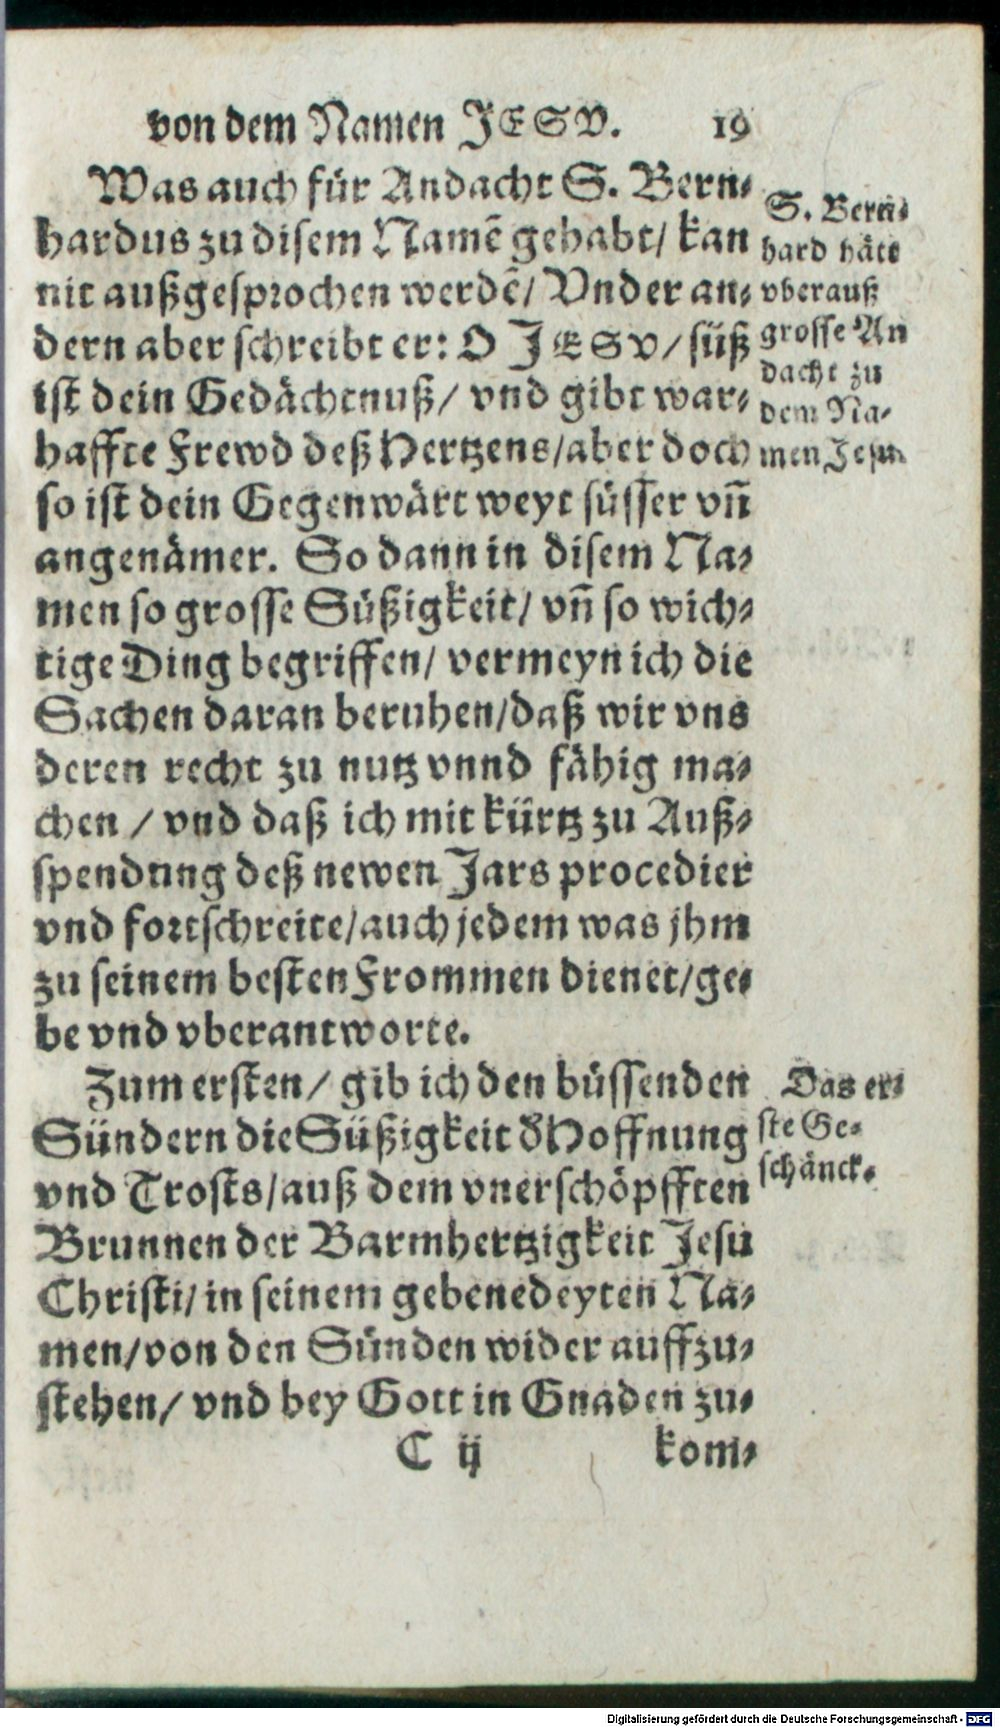 von dem Namen JESV. 19
Was auch für Andacht S. Bern⸗
hardus zu disem Namẽ gehabt/ kan
nit außgesprochen werdẽ/ Vnder an⸗
dern aber schreibt er: O JESV/ süß
ist dein Gedächtnuß/ vnd gibt war⸗
haffte Frewd deß Hertzens/aber doch
so ist dein Gegenwärt weyt süsser vñ
angenämer. So dann in disem Na⸗
men so grosse Süßigkeit/ vñ so wich⸗
tige Ding begriffen/ vermeyn ich die
Sachen daran beruhen/daß wir vns
deren recht zu nutz vnnd fähig ma⸗
chen / vnd daß ich mit kürtz zu Auß⸗
spendung deß newen Jars procedier
vnd fortschreite/auch jedem was jhm
zu seinem besten Frommen dienet/ge⸗
be vnd vberantworte.
Zum ersten/ gib ich den büssenden
Sündern die Süßigkeit d̕ Hoffnung
vnd Trosts/auß dem vnerschöpfften
Brunnen der Barmhertzigkeit Jesu
Christi/in seinem gebenedeyten Na⸗
men/von den Sünden wider auffzu⸗
stehen/ vnd bey Gott in Gnaden zu⸗
C ij kom⸗
S. Bern⸗
hard hätt
vberauß
grosse An
dacht zu
dem Na⸗
men Jesu.
Das er⸗
ste Ge⸗
schänck.
Digitalisierung gefördert durch die Deutsche Forschungsgemeinschaft - DFG